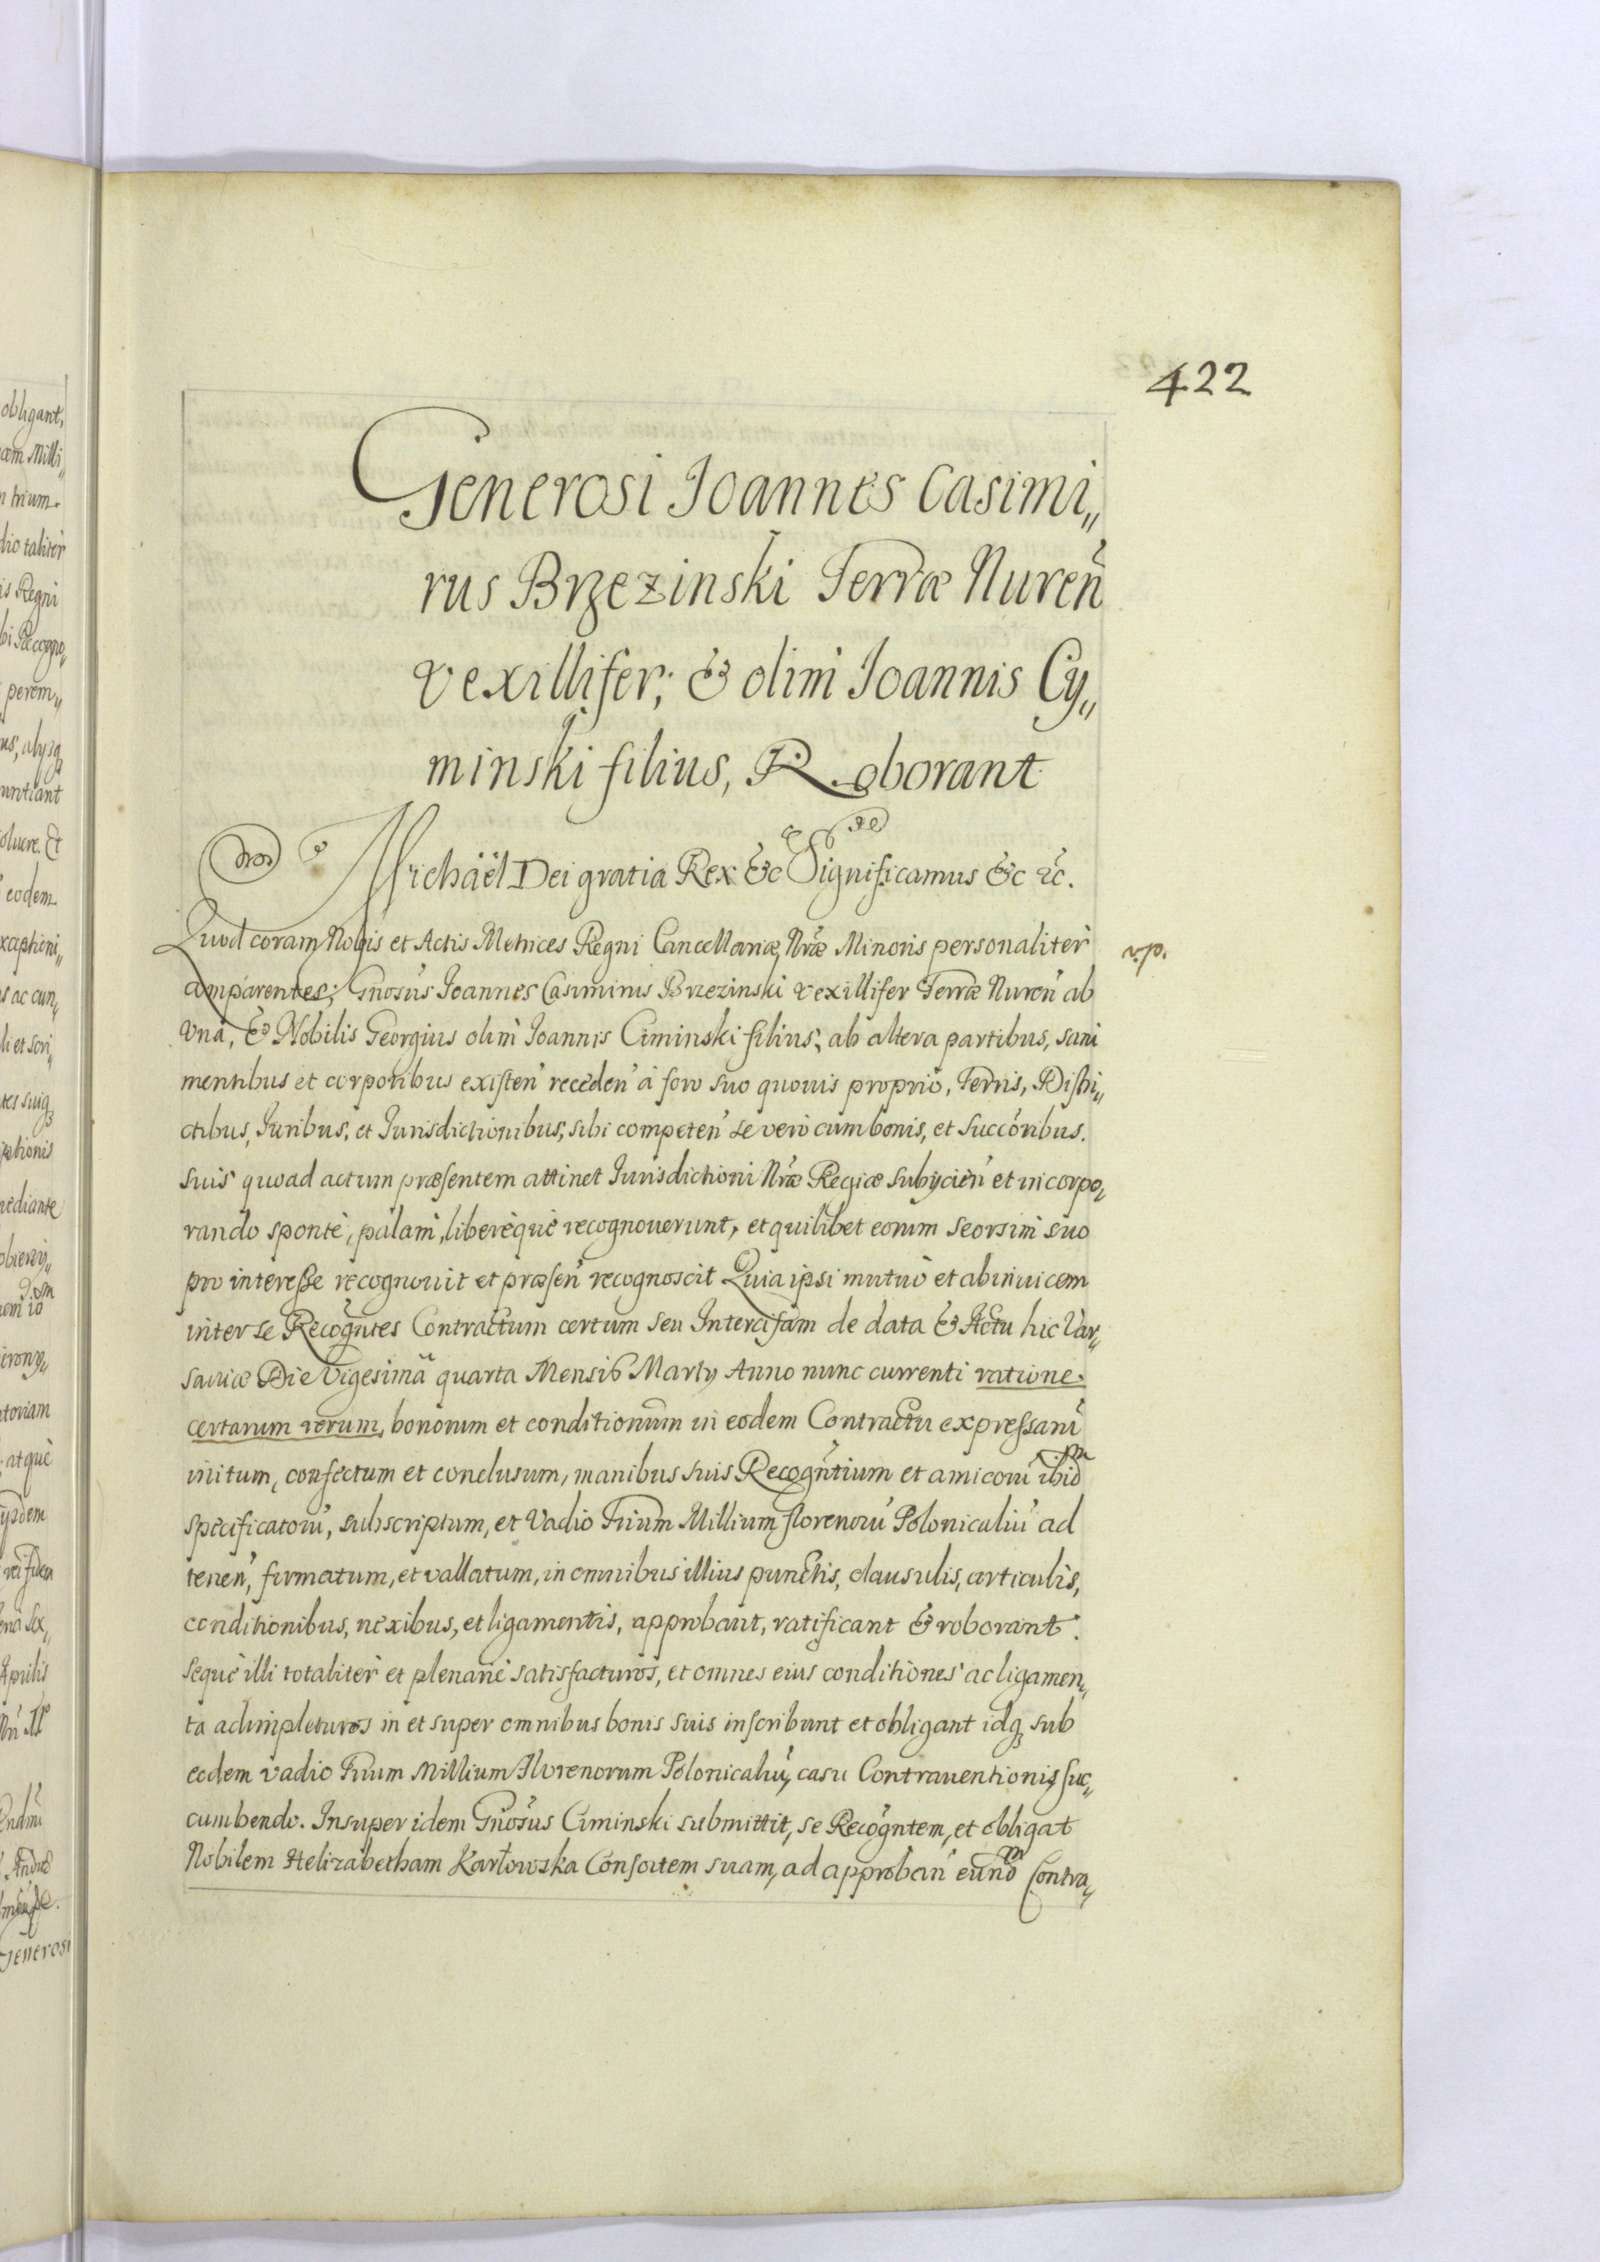 422
Generosi Joannes Casimi„
rus Brzezinski Terræ Nureñ
vexillifer; & olim Joannis Cy„
minski filius, Roborant
Michaël Dei gratia Rex &c Significamus &c &c.
Quod coram Nobis et Actis Metrices Regni Cancellariæ Nr̃æ Minoris personaliter
comparentes; Gñosus Joannes Casimirus Brzezinski vexillifer Terræ Nureñ ab
vna, & Nobilis Georgius olim Joannis Ciminski filius, ab altera partibus, sani
mentibus et corporibus existeñ recedeñ à foro suo quouis proprio, Terris, Distri„
ctibus, Juribus, et Jurisdictionibus, sibi competeñ se vero cum bonis, et succóribus.
suis quoad actum præsentem attinet Jurisdictioni Nr̃æ Regiæ subijcieñ et incorpo„
rando sponte, palam, libereque recognouerunt, et quilibet eorum seorsim suo
pro interesse recognouit et præseñ recognoscit Quia ipsi mutuò et abinuicem
inter se Recogñtes Contractum certum seu Intercisam de data & Actu hic Var„
sauiæ Die Vigesima quarta Mensis Martij Anno nunc currenti ratione
certarum rerum, bonorum et conditionum in eodem Contractu expressarũ
initum, confectum et conclusum, manibus suis Recogñtium et amicorũ ibidm
specificatorũ, subscriptum, et Vadio Trium Millium florenorũ Polonicaliũ ad
teneñ, firmatum, et vallatum, in omnibus illius punctis, clausulis, articulis,
conditionibus, nexibus, et ligamentis, approbant, ratificant & roborant.
seque illi totaliter et plenariè satisfacturos, et omnes eius conditiones ac ligamen„
ta adimpleturos in et super omnibus bonis suis inscribunt et obligant idq̃ sub
eodem vadio Trium Millium Florenorum Polonicaliũ, casu Contrauentionis suc„
cumbendo. Insuper idem Gñosus Ciminski submittit, se Recogñtem, et obligat
Nobilem Helizabetham Karłowska Consortem suam, ad approbañ eũndm Contra„